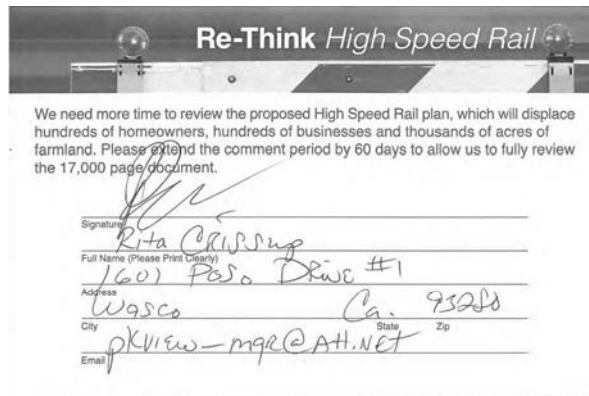 Re-Think High Speed Rail
We need more time to review the proposed High Speed Rail plan, which will displace
hundreds of homeowners, hundreds of businesses and thousands of acres of
farmland. Please extend the comment period by 60 days to allow us to fully review
the 17,000 page document.
Signature
Rita
Full Name (Please Print Clearly)
1601 Poso Drive #1
Address
Wasco Ca. 93280
City State Zip
pkview-mgr@att.net
Email